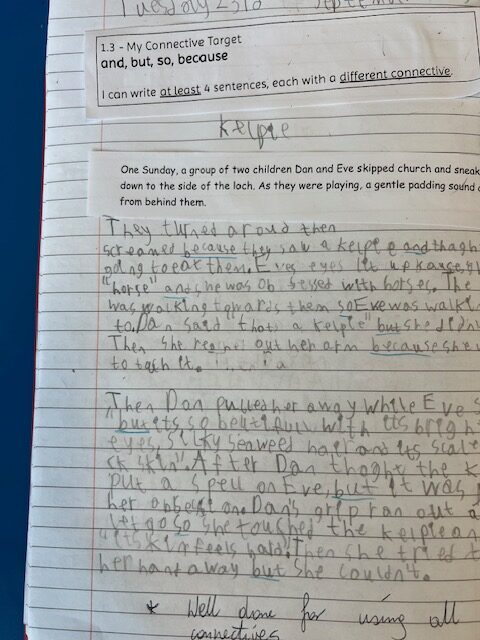 Tuesday 23rd September
1.3 - My Connective Target
and, but, so, because
I can write at least 4 sentences, each with a different connective.
Kelpie
One Sunday, a group of two children Dan and Eve skipped church and sneak
down to the side of the loch. As they were playing, a gentle padding sound
from behind them.
They turned aroud then
screamed because they saw a kelpie and
going to eat them. Eves eyes lit up
"horse" and she was obsessed with horses. The
was walking towards them so Eve was walkin
to. Dan said "thats a kelpie" but she didn
Then she out her arm because she
to
Then Dan pulled her away while Eve s
but its so beutifull with its brigh
eyes, silky seaweed hair and its scale
skin". After Dan thoght the k
put a spell on Eve, but it was
her Dan's grip ran out
let go so she touched the kelpie an
"its skin feels Then she tried t
her away but she couldn't.
* Well done for using all
connectives